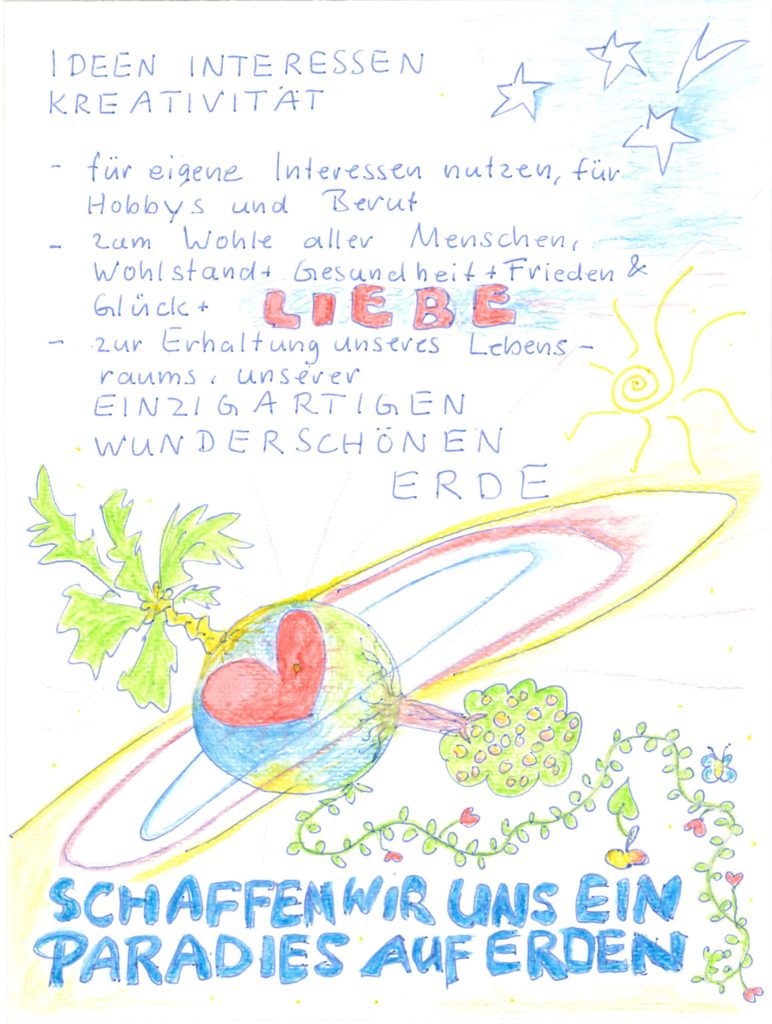 IDEEN INTERESSEN
KREATIVITÄT
- für eigene Interessen nutzen, für
Hobbys und Beruf
- zum Wohle aller Menschen,
Wohlstand+ Gesundheit+Frieden &
Glück+ LIEBE
- zur Erhaltung unseres Lebens-
raums, unserer
EINZIGARTIGEN
WUNDERSCHÖNEN
ERDE
SCHAFFEN WIR UNS EIN
PARADIES AUF ERDEN